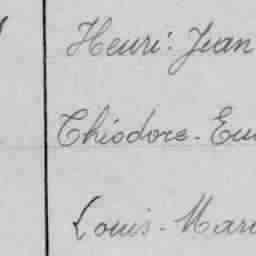 Henri: Jean
Théodore - Eu
Louis - Mari